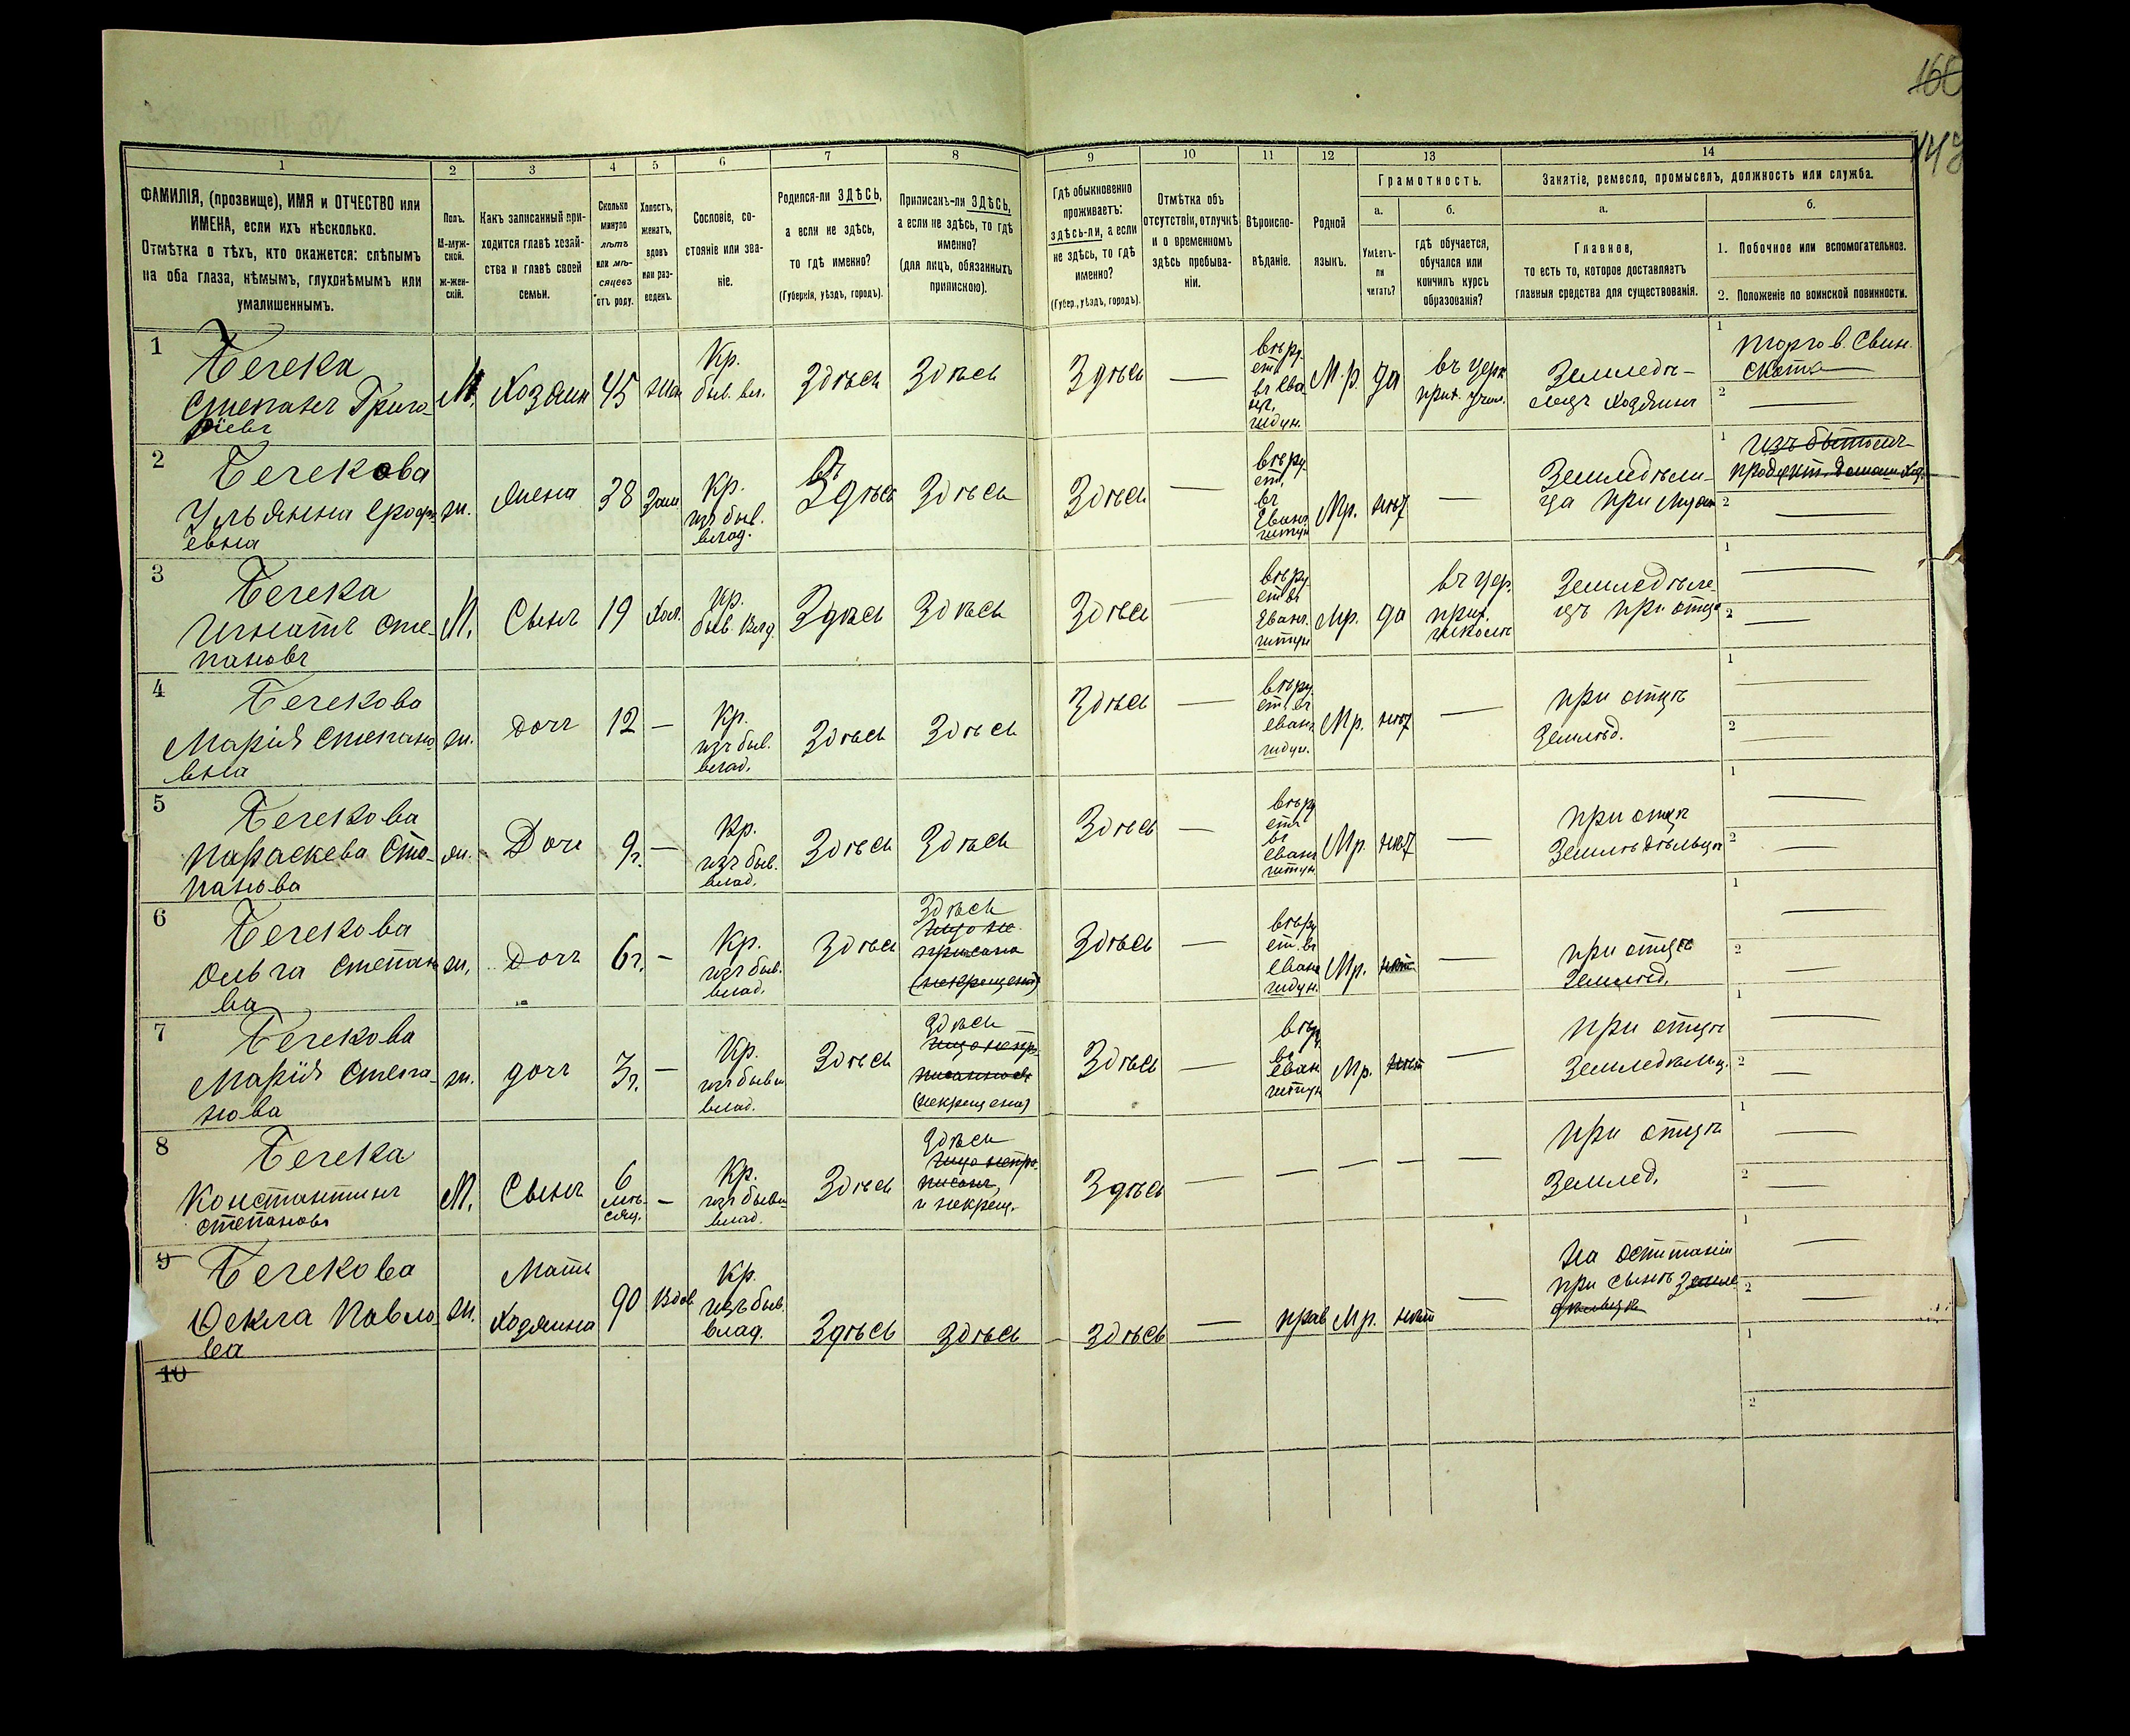 160
149
1 2 3 4 5 6 7 8 9 10 11 12 13 14
ФАМИЛІЯ, (прозвище), ИМЯ и ОТЧЕСТВО или
ИМЕНА, если ихъ нѣсколько.
Отмѣтка о тѣхъ, кто окажется: слѣпымъ
на оба глаза, нѣмымъ, глухонѣмымъ или
умалишеннымъ.
Полъ.
М-муж-
ской.
ж-жен-
скій.
Какъ записанный при-
ходится главѣ хозяй-
ства и главѣ своей
семьи.
Сколько
минуло
лѣтъ
или мѣ-
сяцевъ
отъ роду.
Холостъ,
женатъ,
вдовъ
или раз-
веденъ.
Сословіе, со-
стояніе или зва-
ніе.
Родился-ли ЗДѢСЬ,
а если не здѣсь,
то гдѣ именно?
(Губернія, уѣздъ, городъ).
Приписанъ-ли ЗДѢСЬ,
а если не здѣсь, то гдѣ
именно?
(для лицъ, обязанныхъ
припискою).
Гдѣ обыкновенно
проживаетъ:
здѣсь-ли, а если
не здѣсь, то гдѣ
именно?
(Губер., уѣздъ, городъ).
Отмѣтка объ
отсутствіи, отлучкѣ
и о временномъ
здѣсь пребыва-
ніи.
Вѣроиспо-
вѣданіе.
Родной
языкъ.
Грамотность.
а.
Умѣетъ-
ли
читать?
б.
гдѣ обучается,
обучался или
кончилъ курсъ
образованія?
Занятіе, ремесло, промыселъ, должность или служба.
а.
Главное,
то есть то, которое доставляетъ
главныя средства для существованія.
б.
1. Побочное или вспомогательное.
2. Положеніе по воинской повинности.
1
Бечека
Степанъ Григо-
ріевъ
М.
Хозяин
45
жен
Кр.
быв. вл.
Здѣсь
Здѣсь
Здѣсь
—
М.р.
да
въ церк
прих. учил.
Земледѣ-
лецъ хозяинъ
1
торгов. Свин.
скота
2
—
2
Бечекова
Ульянна
евна
ж.
жена
38
зам
Кр.
изъ быв.
влад.
Здѣсь
Здѣсь
Здѣсь
—
Мр.
нѣт
—
Земледѣли-
ца при мужѣ
1
2
—
3
Бечека
Игнатъ Сте-
пановъ
М.
Сынъ
19
Хол.
Кр.
быв. влад.
Здѣсь
Здѣсь
Здѣсь
—
Мр.
да
въ цер.
прих.
школѣ
Земледѣле-
цъ при отцѣ
1
—
2
—
4
Бечекова
Марія Степано-
вна
ж.
дочь
12
—
Кр.
изъ быв.
влад.
Здѣсь
Здѣсь
Здѣсь
—
Мр.
нѣт
—
при отцѣ
Землѣд.
1
—
2
—
5
Бечекова
Параскева Сте-
панова
ж.
Дочь
9г.
—
Кр.
изъ быв.
влад.
Здѣсь
Здѣсь
Здѣсь
—
Мр.
нѣт
—
при отцѣ
Землѣдѣльцѣ
1
—
2
—
6
Бечекова
Ольга Степано
ва
ж.
Дочь
6г.
—
Кр.
изъ быв.
влад.
Здѣсь
Здѣсь
Здѣсь
—
Мр.
нѣт
—
при отцѣ
Землѣд.
1
—
2
—
7
Бечекова
Марія Степа-
нова
ж.
дочь
3г.
—
Кр.
изъ бывш
влад.
Здѣсь
Здѣсь
(некрещена)
Здѣсь
—
Мр.
нѣт
—
при отцѣ
Земледѣльц.
1
—
2
—
8
Бечека
Константинъ
Степановъ
М.
Сынъ
6
мѣ-
сяц.
—
Кр.
изъ бывш
влад.
Здѣсь
Здѣсь
и некрещ.
Здѣсь
—
—
—
—
—
при отцѣ
Землед.
1
—
2
—
9
Бечекова
Фекла Павло-
ва
ж.
Мать
хозяина
90
вдов
Кр.
изъ быв.
влад.
Здѣсь
Здѣсь
Здѣсь
—
прав
Мр.
нѣт
—
при сынѣ
1
—
2
—
10
1
2